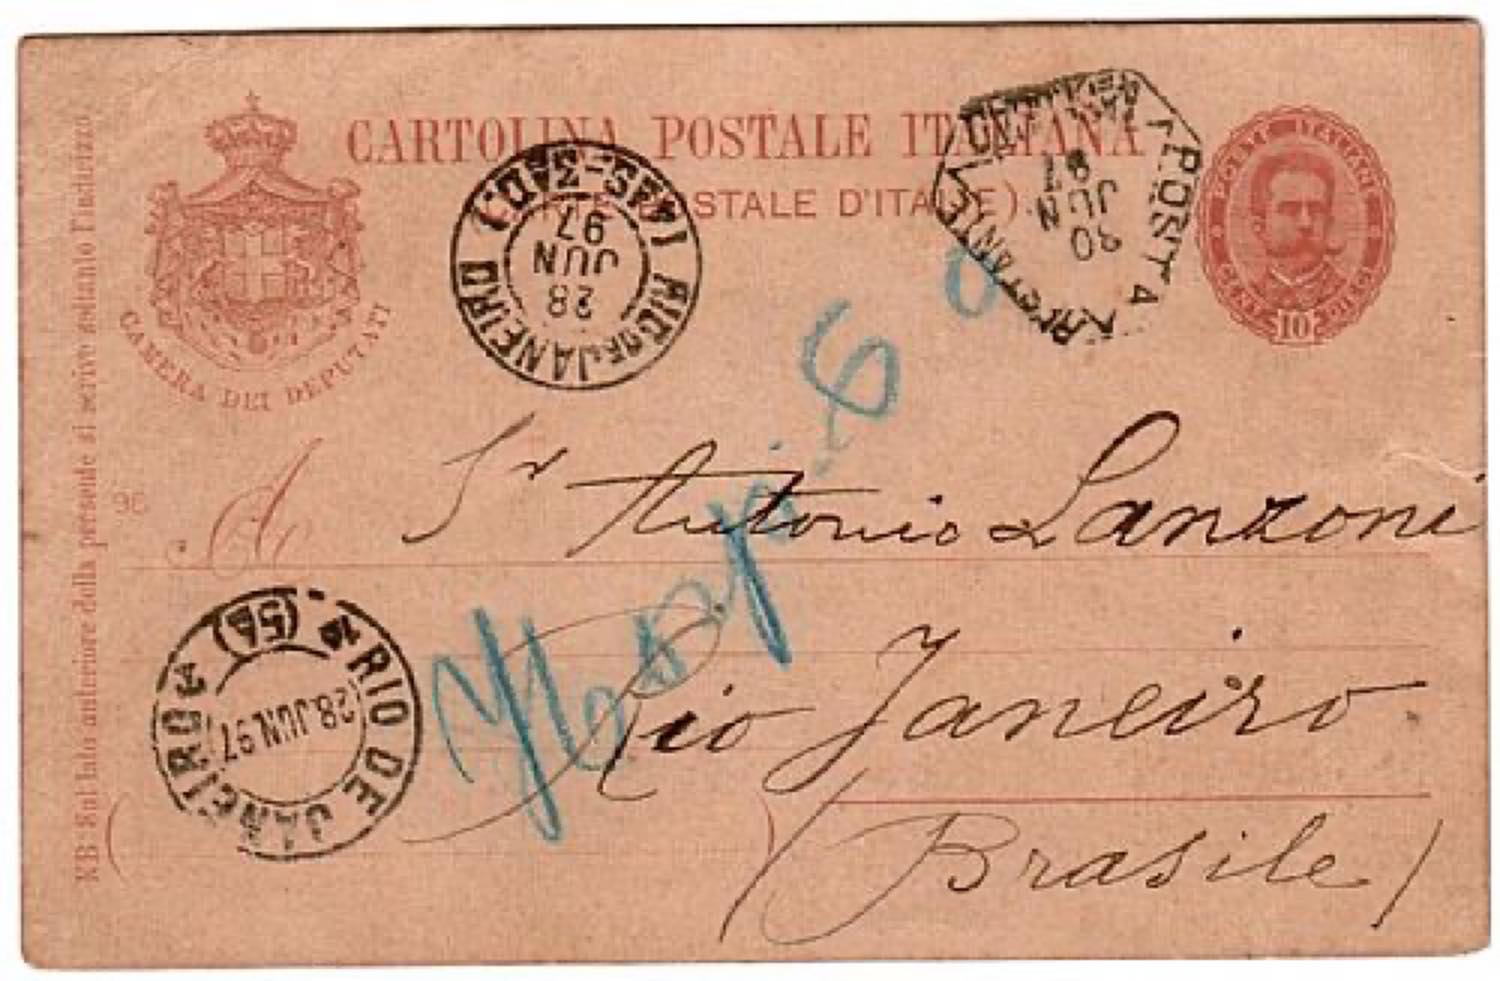 CARTOLINA POSTALE ITALIANA
STALE D'ITALIE)
CAMERA DEI DEPUTATI
POSTE ITALIANE
CENT. DIECI
10
RIO DE JANEIRO
28
JUN
97
POSTA
JUN
97
NB. Sul lato anteriore della presente si scrive soltanto l'indirizzo.
96
A
Sr Antonio Lanzoni
Rio Janeiro
(Brasile)
RIO DE JANEIRO
(5A)
28.JUN.97